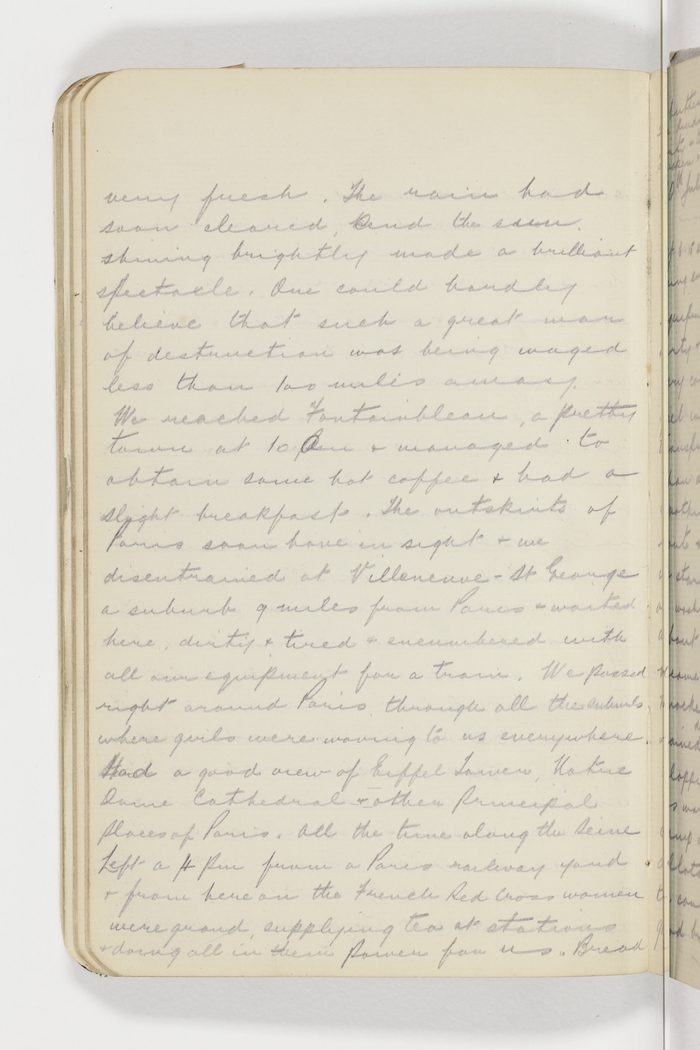 very fresh. The rain had
soon cleared, and the sun.
shining brightly made a brilliant
spectacle. One could hardly
believe that such a great war
of destruction was being waged
less than 100 miles away.
We reached Fontainbleau, a pretty
town at 10 Am & managed to
obtain some hot coffee & had a
slight breakfast. The outskirts of
Paris soon hove in sight & we
disentrained at Villeneuve-St George
a suburb 9 miles from Paris & waited
here, dirty & tired & encumbered with
all our equipment for a train. We passed
right around Paris, through all the suburbs,
where girls were waving to us everywhere.
Had a good view of Eiffel Tower, Notre
Dame Cathedral & other Principal
places of Paris. All the time along the Seine
Left a 4 Pm from a Paris railway yard
& from here on the French Red Cross women
were grand, supplying tea at stations
& doing all in their power for us. Bread